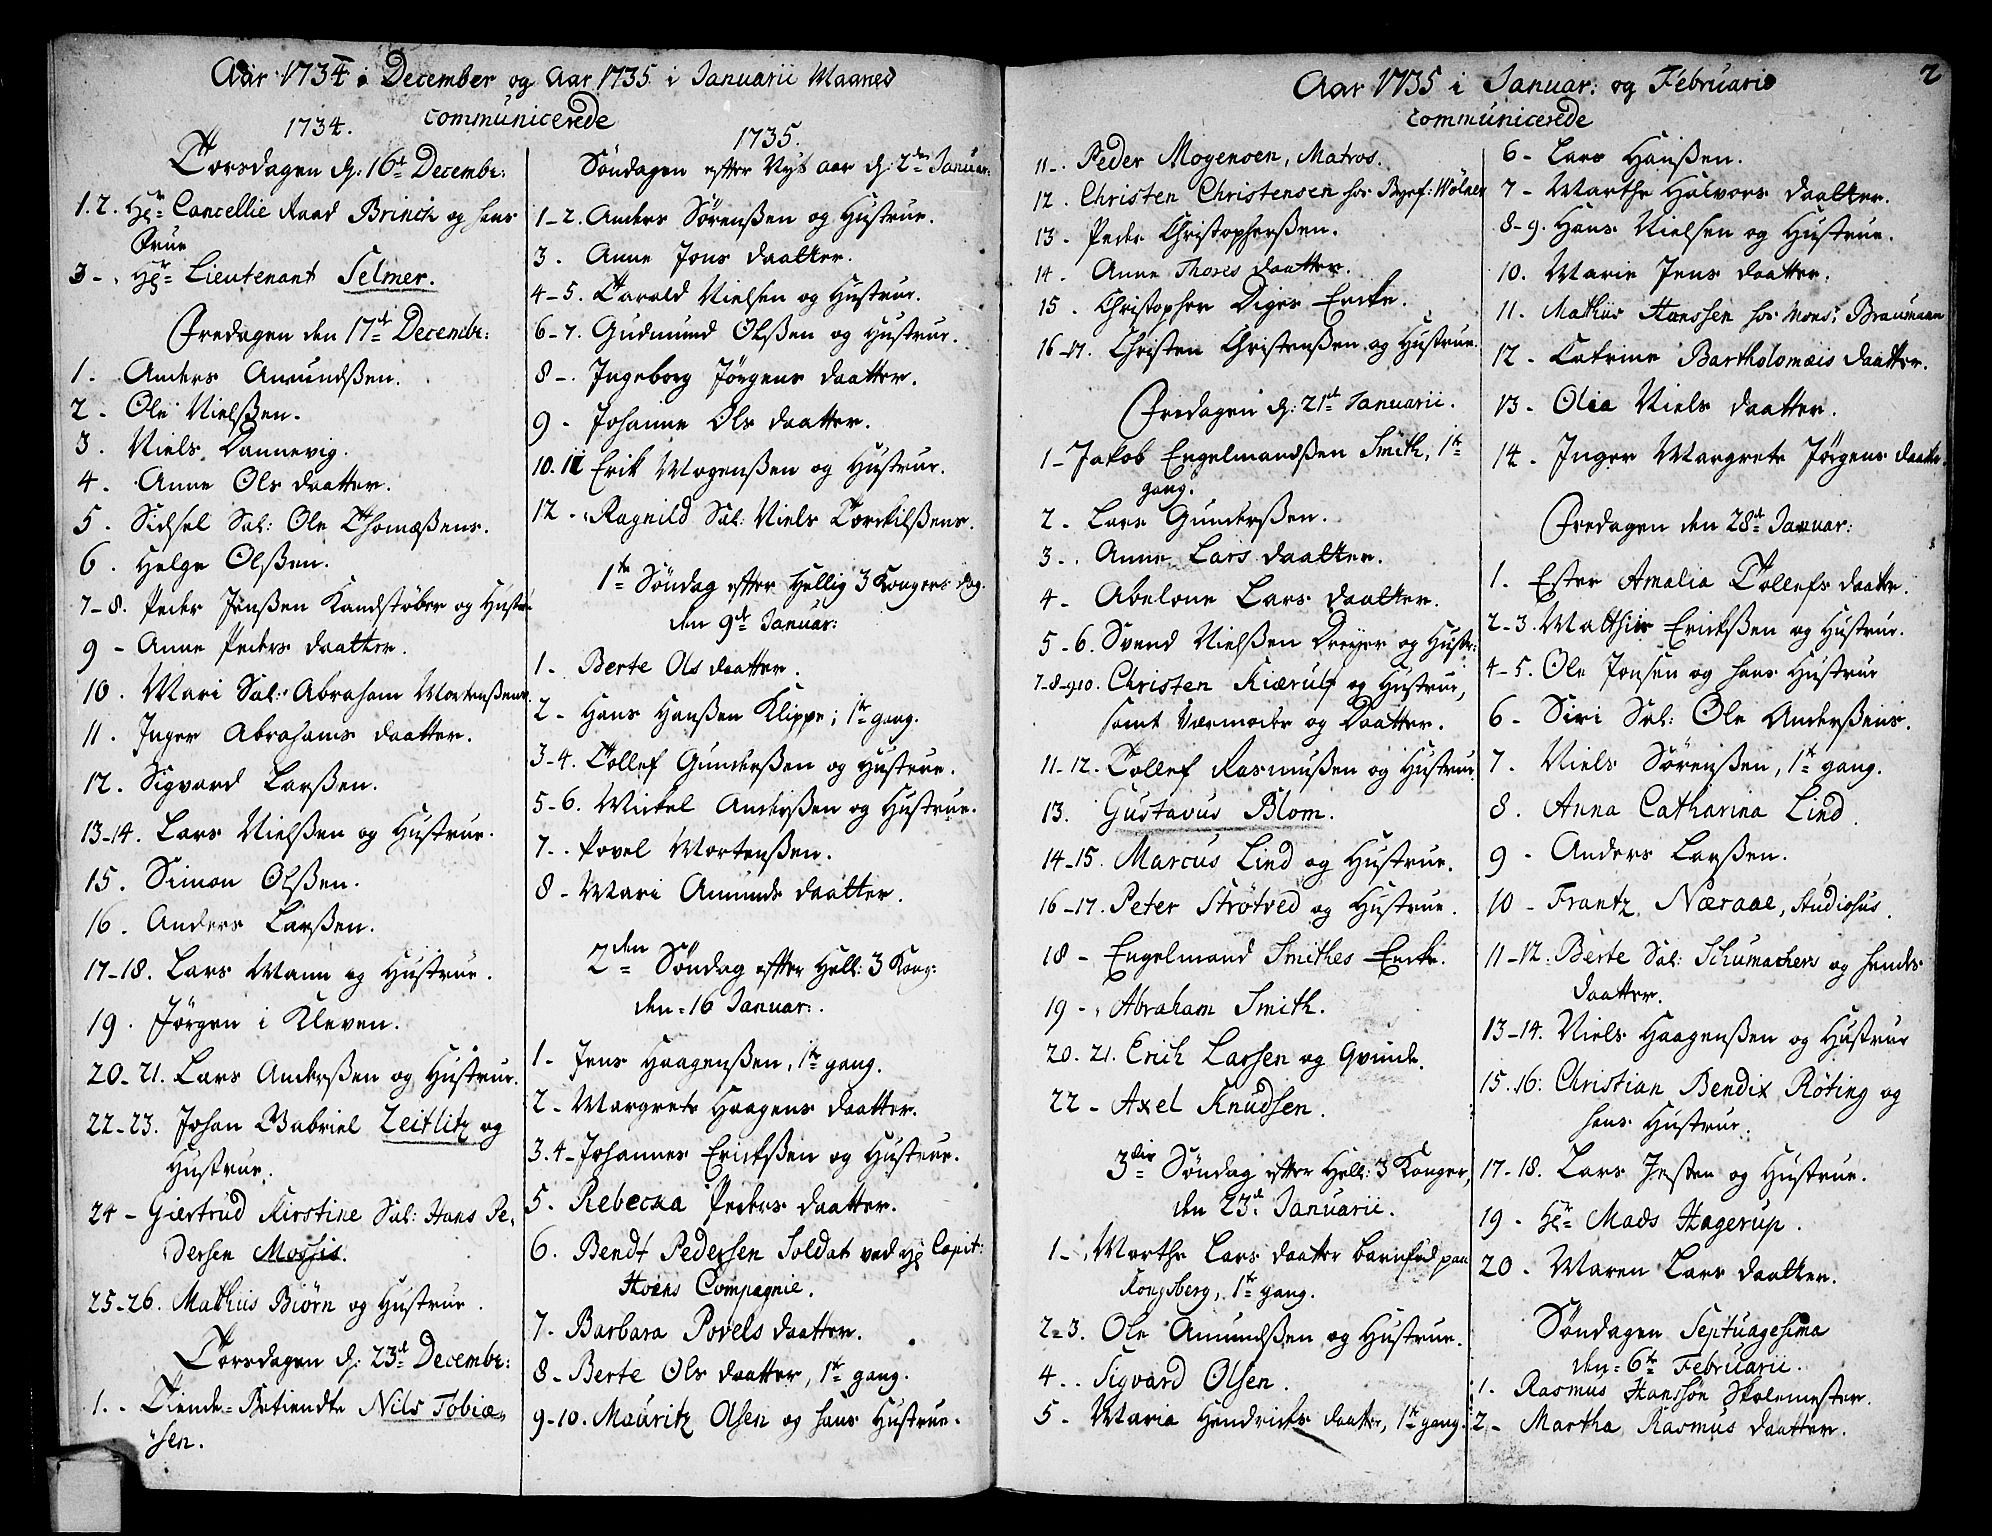 Aar 1734 i December og Aar 1735 i Januarii Maaned
communicerede
1734.
Torsdagen d: 16de Decembr:
1.2. Hr Cancellie Raad Brinch og hans
Frue
3 - Hr Lieutenant Selmer.
Fredagen den 17de Decembr:
1. Anders Amundsßen.
2 - Ole Nielsßen.
3. Niels Dannevig.
4. Anne Ols daatter.
5. Sidsel Sal: Ole Thomæßens.
6. Helge Olsßen.
7-8. Peder Jensßen Kandstøber og Hustru
9 - Anne Peders daatter.
10. Mari Sal: Abraham Mortenßens
11. Inger Abrahams daatter.
12. Sigvard Larsßen.
13-14. Lars Nielsßen og Hustrue.
15. Simon Olsßen.
16. Anders Larsßen.
17-18. Lars Mann og Hustrue.
19. Jørgen i Kleven.
20-21. Lars Andersßen og Hustrue.
22-23. Johan Gabriel Zeitlitz og
Hustrue.
24 - Giertrud Kirstine Sal: Hans Pe-
dersen Mosses.
25-26. Mathiis Biørn og Hustrue.
Torsdagen d: 23de Decembr:
1. - Tiende-Betiendte Nils Tobiæ-
sen.
1735.
Søndagen efter Nyt aar d: 2den Januar:
1-2. Anders Sørensßen og Hustrue.
3. Anne Jons daatter.
4-5. Tarald Nielsen og Hustrue.
6-7. Gudmund Olsßen og Hustrue.
8 -. Ingeborg Jørgens daatter.
9 - Johanne Ols daatter.
10.11 Erik Mogensßen og Hustrue.
12 - Ragnild Sal: Niels Torkilsßens.
1te Søndag efter Hellig 3 Kongers dag.
den 9de Januar:
1. Berte Ols daatter.
2 - Hans Hansßen Klippe; 1te gang.
3-4. Tollef Gundersßen og Hustrue.
5-6. Mickel Andersßen og Hustrue.
7. . Povel Mortensßen.
8 - Mari Amunds daatter.
2den Søndag efter Hell: 3 Kong:
den 16 Januar:.
1 - Jens Haagensßen, 1te gang.
2 - Margrete Haagens daatter.
3.4 - Johannes Ericksßen og Hustrue.
5. Rebecka Peders daatter.
6. Bendt Pedersen Soldat ved Hr Capit:
Hoens Compagnie.
7. Barbara Povels daatter.
8 - Berte Ols daatter, 1te gang.
9-10. Mauritz Olsen og hans Hustrue.
Aar 1735 i Januar: og Februario 2
communicerede
11 -. Peder Mogensen, Matros.
12. Christen Christensen hos Byef: Wølner
13. Peder Christophersßen.
14. Anne Thores daatter.
15. Christopher Diges Encke.
16-17. Christen Christensßen og Hustrue.
Fredagen d: 21de Januarii.
1 - Jakob Engelmandsßen Smith, 1te
gang.
2. Lars Gundersßen.
3. . Anne Lars daatter.
4 - Abelone Lars daatter.
5-6. Svend Nielsßen Dreyer og Hustr:
7-8-9-10. Christen Kiærulf og Hustrue,
samt Værmoder og Daatter.
11-12. Tollef Rasmusßen og Hustrue
13. Gustavus Blom.
14-15. Marcus Lind og Hustrue.
16-17. Peter Strøtved og Hustrue.
18 - Engelmand Smithes Encke.
19 - Abraham Smith.
20. 21. Erich Larsen og Qvinde.
22 - Axel Knudsen.
3die Søndag efter Hell: 3 Konger,
den 23de Januarii.
1 -. Marthe Lars daatter barnfød paa
Kongsberg, 1te gang.
2=3. Ole Amundsßen og Hustrue.
4. . Sigvard Olsen.
5 - Maria Hendricks daatter, 1te gang.
6 - Lars Hansßen.
7 - Marthe Halvors daatter.
8-9. Hans Nielsen og Hustrue.
10. Marie Jens daatter.
11. Mathiis Hanssen hos Monsr Braumann
12 - Catrine Bartholomæis daatter.
13 - Olea Niels daatter.
14. Inger Margrete Jørgens daatter.
Fredagen den 28de Januar:
1. Ester Amalia Tollefs daatter.
2-3. Matthiis Ericksßen og Hustrue.
4-5. Ole Jonsen og hans Hustrue
6 - Siri Sal: Ole Andersßens.
7. Niels Sørensßen, 1te gang.
8. Anna Catharina Lind.
9 - Anders Larsßen.
10 - Frantz Næraae, Studiosus.
11-12. Berte Sal: Schumachers og hendes
daatter.
13-14. Niels Haagensßen og Hustrue
15.16. Christian Bendix Røting og
hans Hustrue.
17-18. Lars Jesten og Hustrue.
19 - Hr Mads Hagerup.
20 - Maren Lars daatter.
Søndagen Septuagesima
den 6te Februarii.
1. Rasmus Hanssøn Skolemester.
2 - Martha Rasmus daatter.